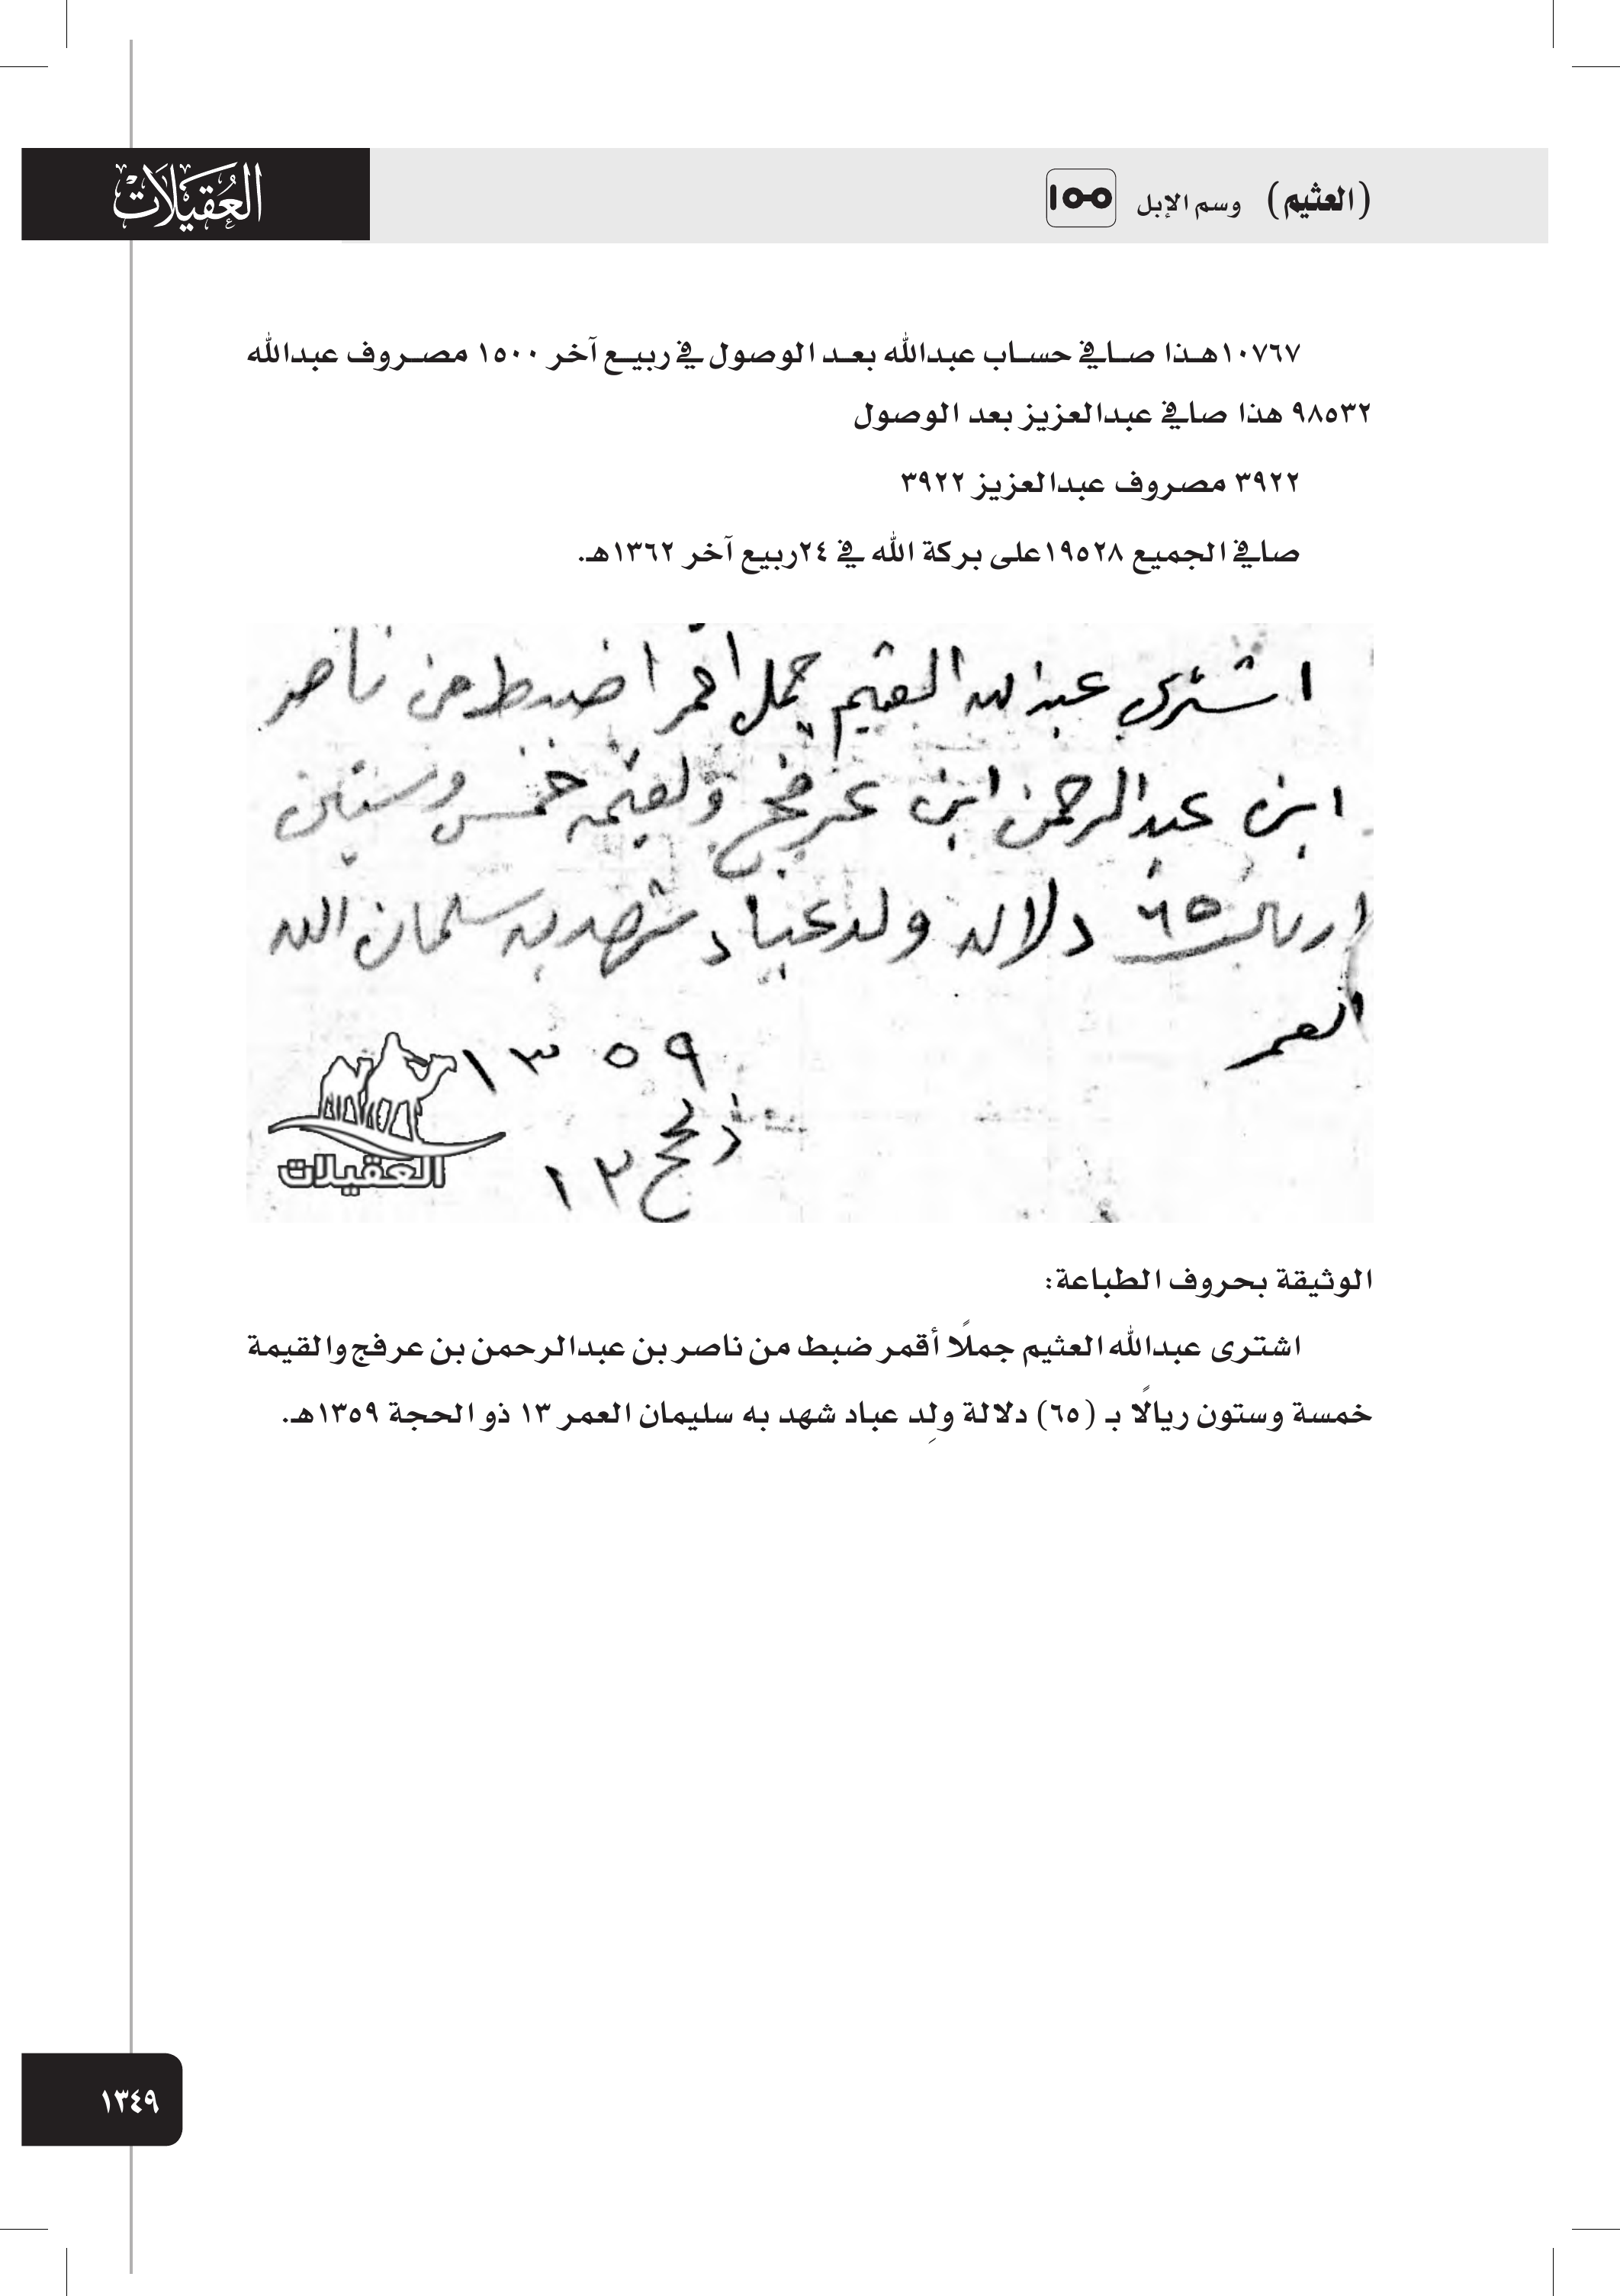 (العثيم) وسم الإبل
العقيلات
١٠٧٦٧هـذا صـافي حسـاب عبدالله بعـد الوصول في ربيـع آخر ١٥٠٠ مصـروف عبدالله
٩٨٥٣٢ هذا صافي عبدالعزيز بعد الوصول
٣٩٢٢ مصروف عبدالعزيز ٣٩٢٢
صافي الجميع ١٩٥٢٨على بركة الله في ٢٤ربيع آخر ١٣٦٢هـ.
اشترى عبد الله العثيم جمل اقمر اضبط من ناصر
ابن عبدالرحمن ابن عرفج ولقيمه خمس وستين
اريال ٦٥ دلاله ولد عباد شهد به سلمان
العمر
١٣٥٩
١٣
العقيلات
الوثيقة بحروف الطباعة:
اشترى عبدالله العثيم جملًا أقمر ضبط من ناصر بن عبدالرحمن بن عرفج والقيمة
خمسة وستون ريالًا بـ (٦٥) دلالة ولِد عباد شهد به سليمان العمر ١٣ ذو الحجة ١٣٥٩هـ.
١٣٤٩